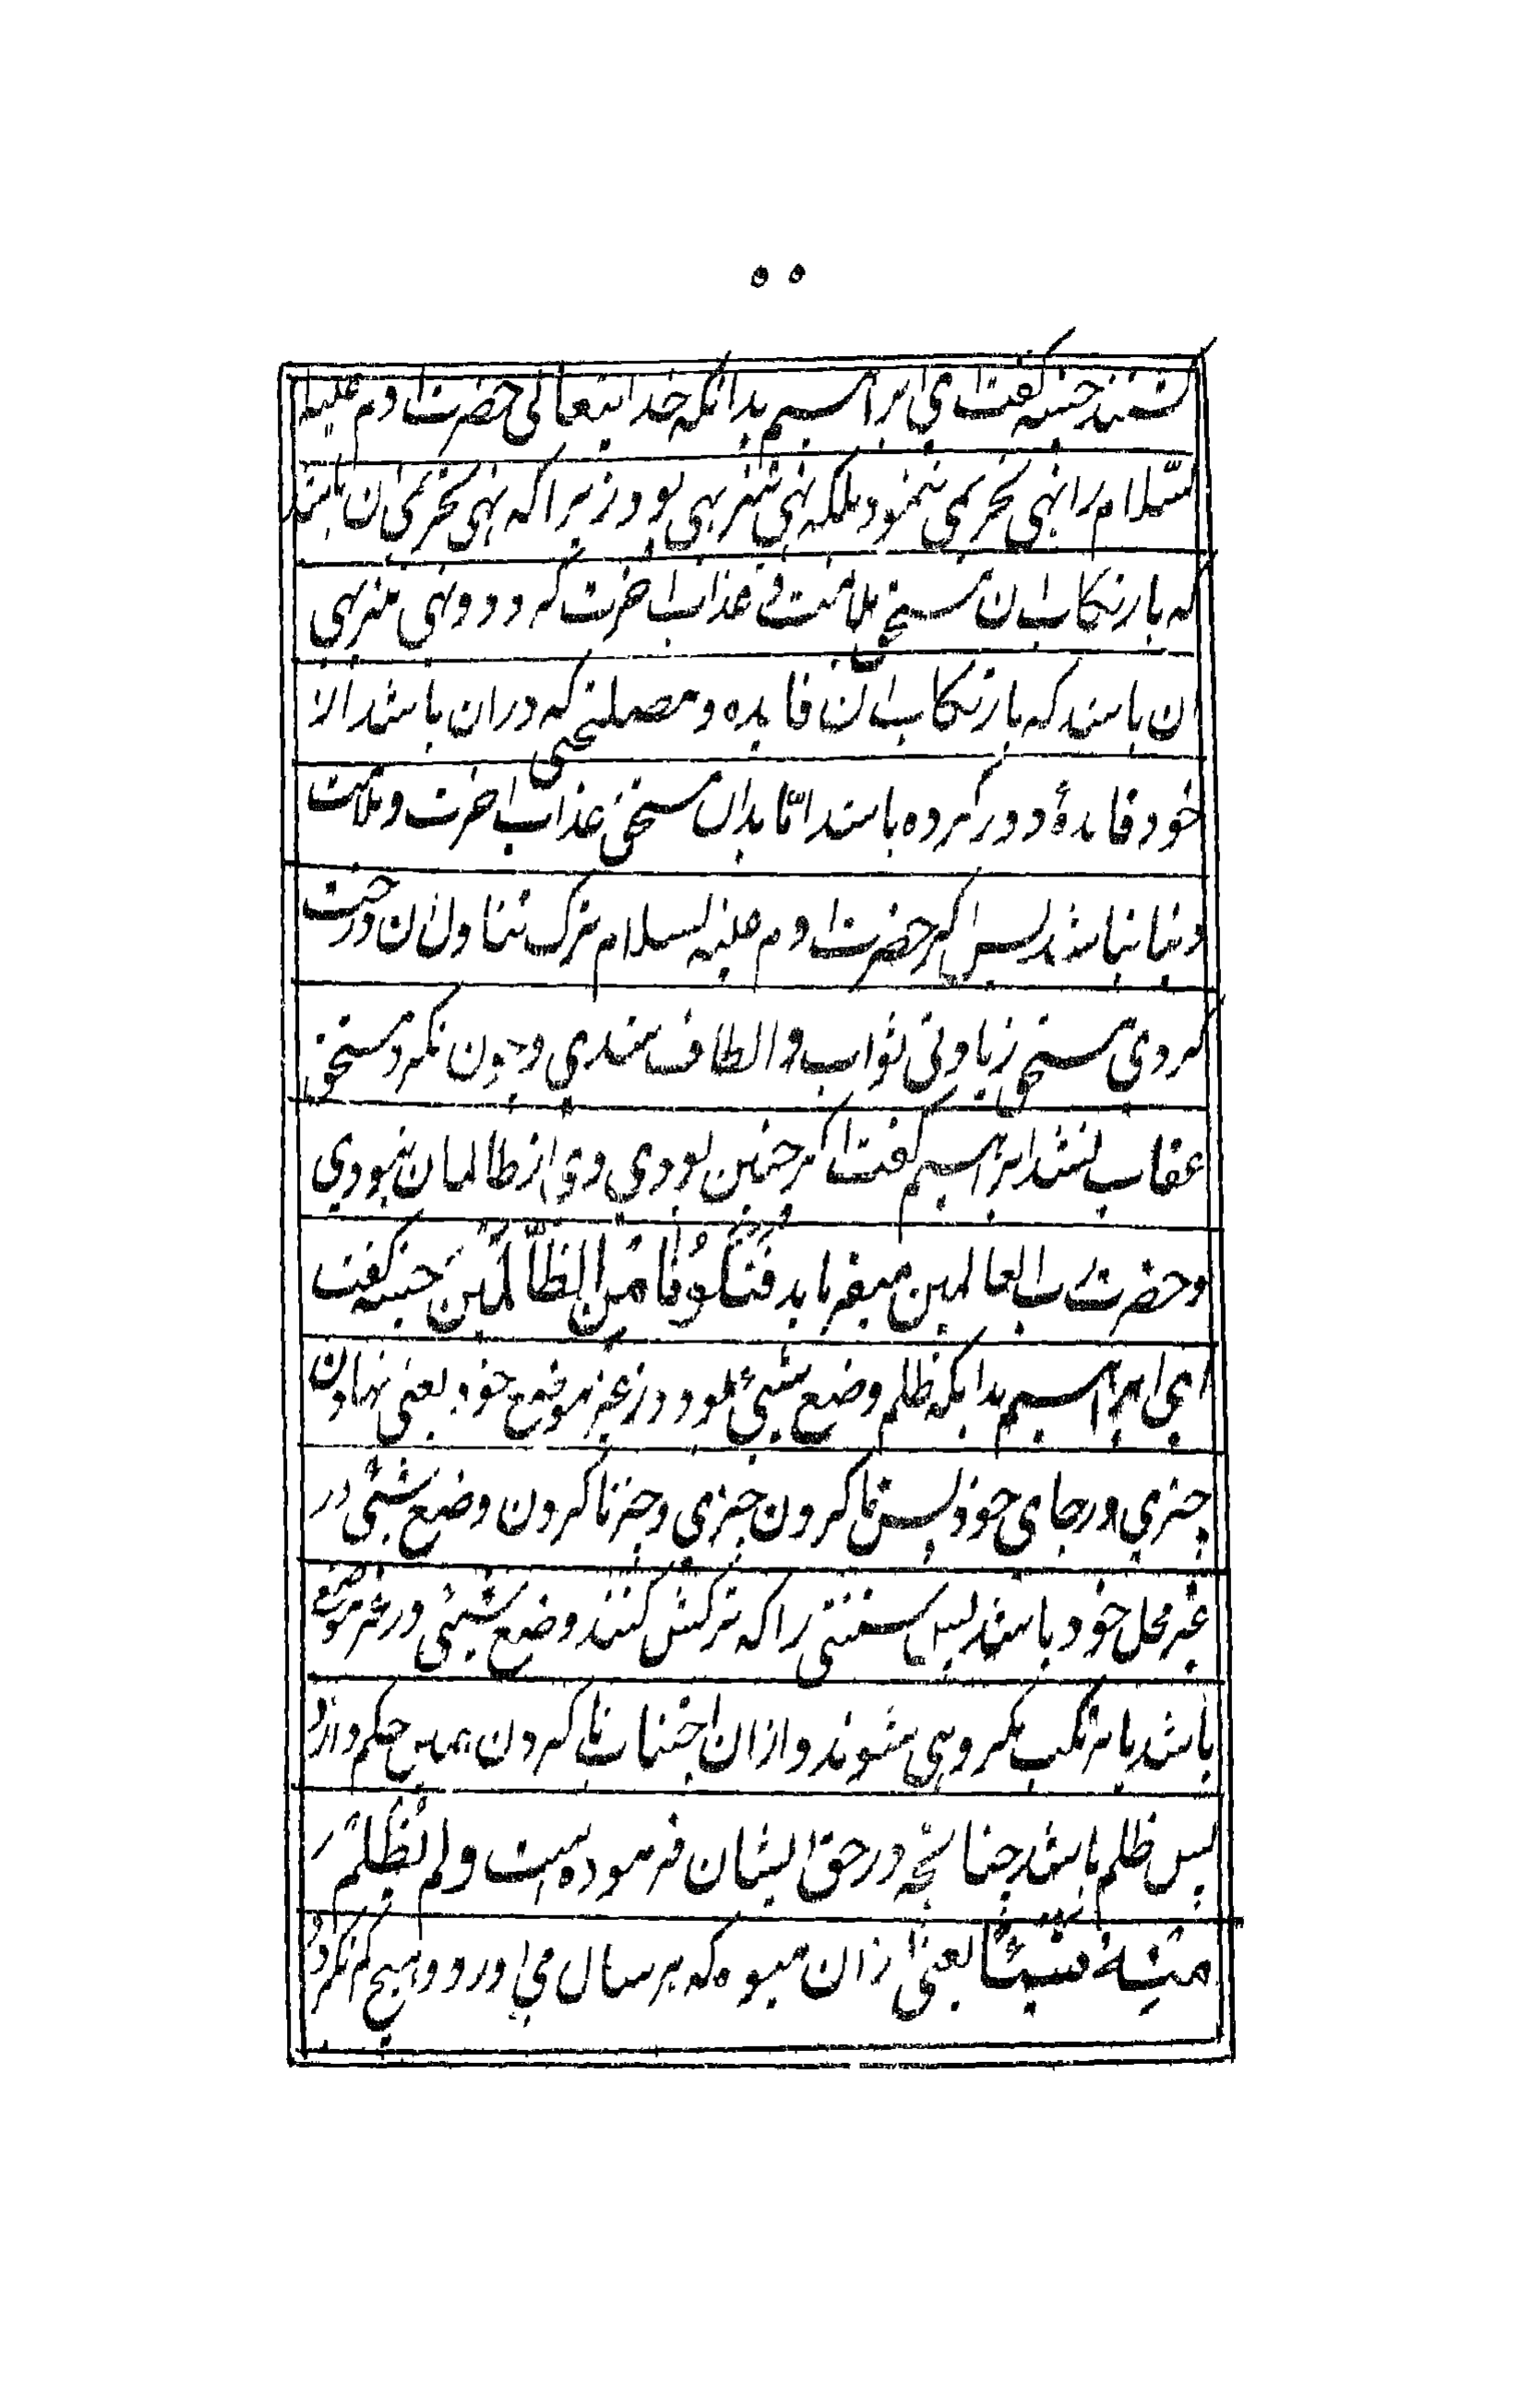 ۵۵
شنید حسنیه گفت ای ابراهیم بدانکه خدایتعالی حضرت ادم علیه
السّلام را نهی تحریمی ننمود بلکه نهی تنزیهی بود زیرا که نهی تحریمی ان باشد
که بارتکاب ان مستحق ملامت و عذاب اخرت کردد و نهی تنزیهی
ان باشد که بارتکاب ان فایده و مصلحتی که دران باشد الا
خود فایدهٔ دور کرده باشد امّا بدان مستحق عذاب اخرت و ملامت
دنیا نباشد پس اکر حضرت ادم علیه السلام ترک تناول ان درخت
کردی مستحق زیادتی ثواب و الطاف شدی و چون نکرد مستحق
عقاب نشد ابراهیم گفت اکر چنین بودی وی از ظالمان نبودی
و حضرت رب العالمین میفرماید فَتَکُونَا مِنَ الظَّالِمِینَ حسنیه گفت
ای ابراهیم بدانکه ظلم وضع شیئ بود در غیر موضع خود یعنی نهادن
چیزی در جای خود پس ناکردن چیزی و چیز ناکردن وضع شیئی در
غیر محل خود باشد پس سنتی را که ترکش کنند وضع شیئی در غیر موضع
باشد یا مرتکب مکروهی شوند و ازان اجتناب ناکردن همین حکم دارد
پس ظلم باشد چنانچه در حق ایشان فرموده است ولم تَظْلِمْ
مِنْهُ شَیْئًا یعنی ازان میوه که هر سال می اورد و هیچ کم نکرد